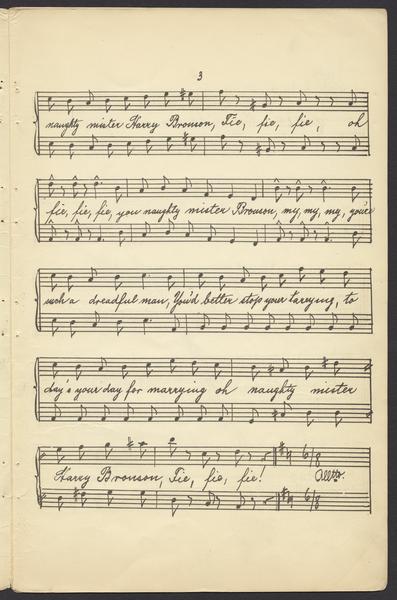 3
naughty mister Harry Bronson, Fie, fie, fie, oh
fie, fie, fie, you naughty mister Bronson, my, my, my, you're
such a dreadful man, You'd better stop your tarrying, to
day's your day for marrying oh naughty mister
Harry Bronson, Fie, fie, fie! Alltto.
6/8
6/8